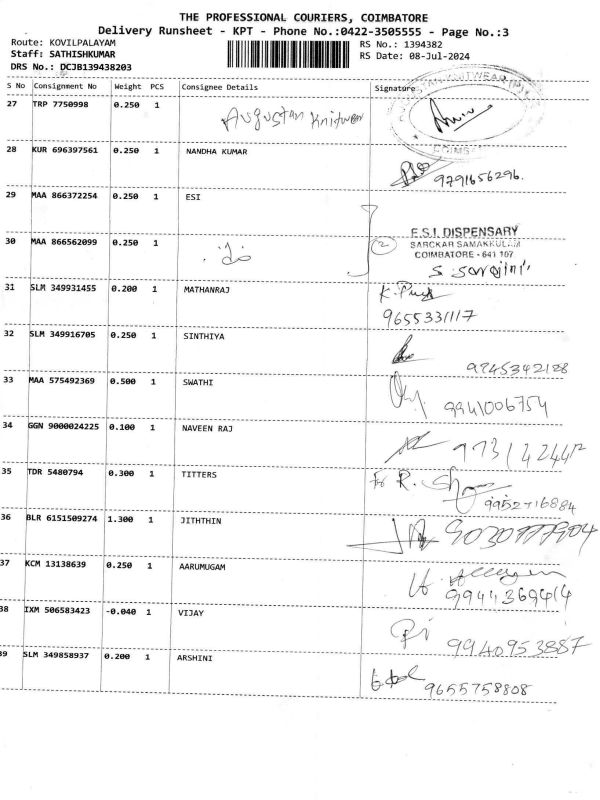 THE PROFESSIONAL COURIERS, COIMBATORE
Delivery Runsheet - KPT - Phone No.:0422-3505555 - Page No.:3
Route: KOVILPALAYAM RS No.: 1394382
Staff: SATHISHKUMAR RS Date: 08-Jul-2024
DRS No.: DCJB139438203
S No Consignment No Weight PCS Consignee Details Signature
27 TRP 7750998 0.250 1 Augustan Knitwear
COIMB
28 KUR 696397561 0.250 1 NANDHA KUMAR
9791656296.
29 MAA 866372254 0.250 1 ESI
E.S.I. DISPENSARY
30 MAA 866562099 0.250 1 2 SARCKAR SAMAKKULAM
COIMBATORE - 641 107
S. Sarojini
31 SLM 349931455 0.200 1 MATHANRAJ
9655331117
32 SLM 349916705 0.250 1 SINTHIYA
9745342128
33 MAA 575492369 0.500 1 SWATHI
9941006754
34 GGN 9000024225 0.100 1 NAVEEN RAJ
35 TDR 5480794 0.300 1 TITTERS For R.
9952716884
36 BLR 6151509274 1.300 1 JITHTHIN
37 KCM 13138639 0.250 1 AARUMUGAM
9944369414
38 IXM 506583423 -0.040 1 VIJAY
9940953887
39 SLM 349858937 0.200 1 ARSHINI
9655758808